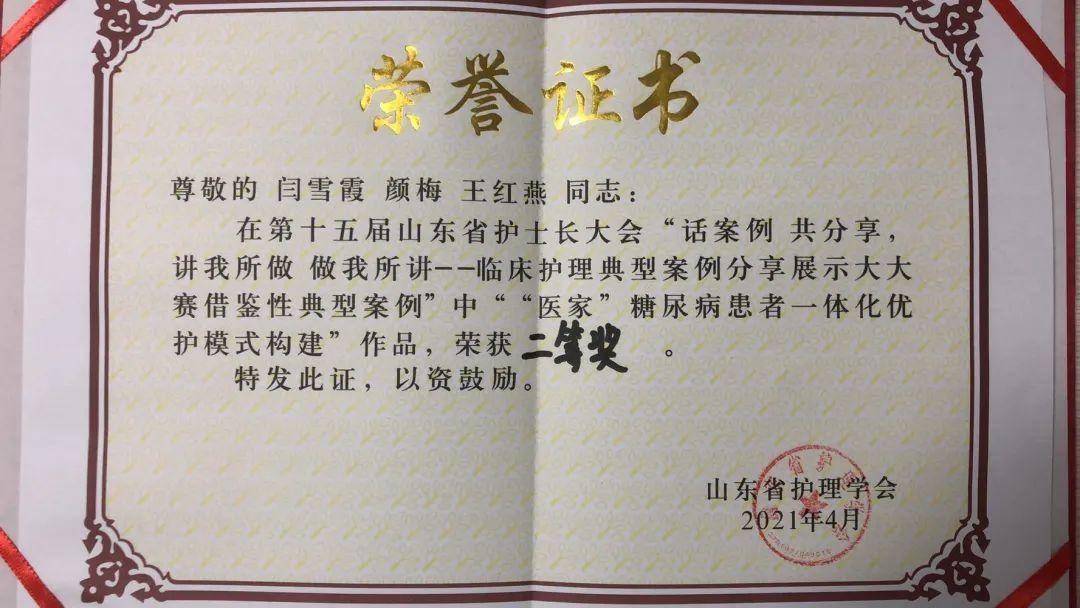 荣誉证书
尊敬的 闫雪霞 颜梅 王红燕 同志：
在第十五届山东省护士长大会“话案例 共分享，
讲我所做 做我所讲--临床护理典型案例分享展示大大
赛借鉴性典型案例”中““医家”糖尿病患者一体化优
护模式构建”作品，荣获 二等奖 。
特发此证，以资鼓励。
山东省护理学会
2021年4月